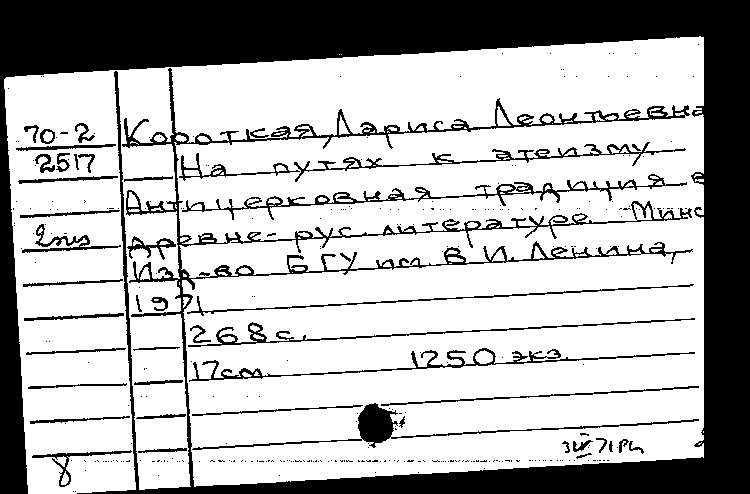 70-2 Короткая, Лариса Леонтьевна
2517 На путях к атеизму.
Антицерковная традиция в
2 пз древне-рус. литературе. Минс
Изд-во БГУ им. В. И. Ленина,
1971.
268 с.
17 см. 1250 экз.
8